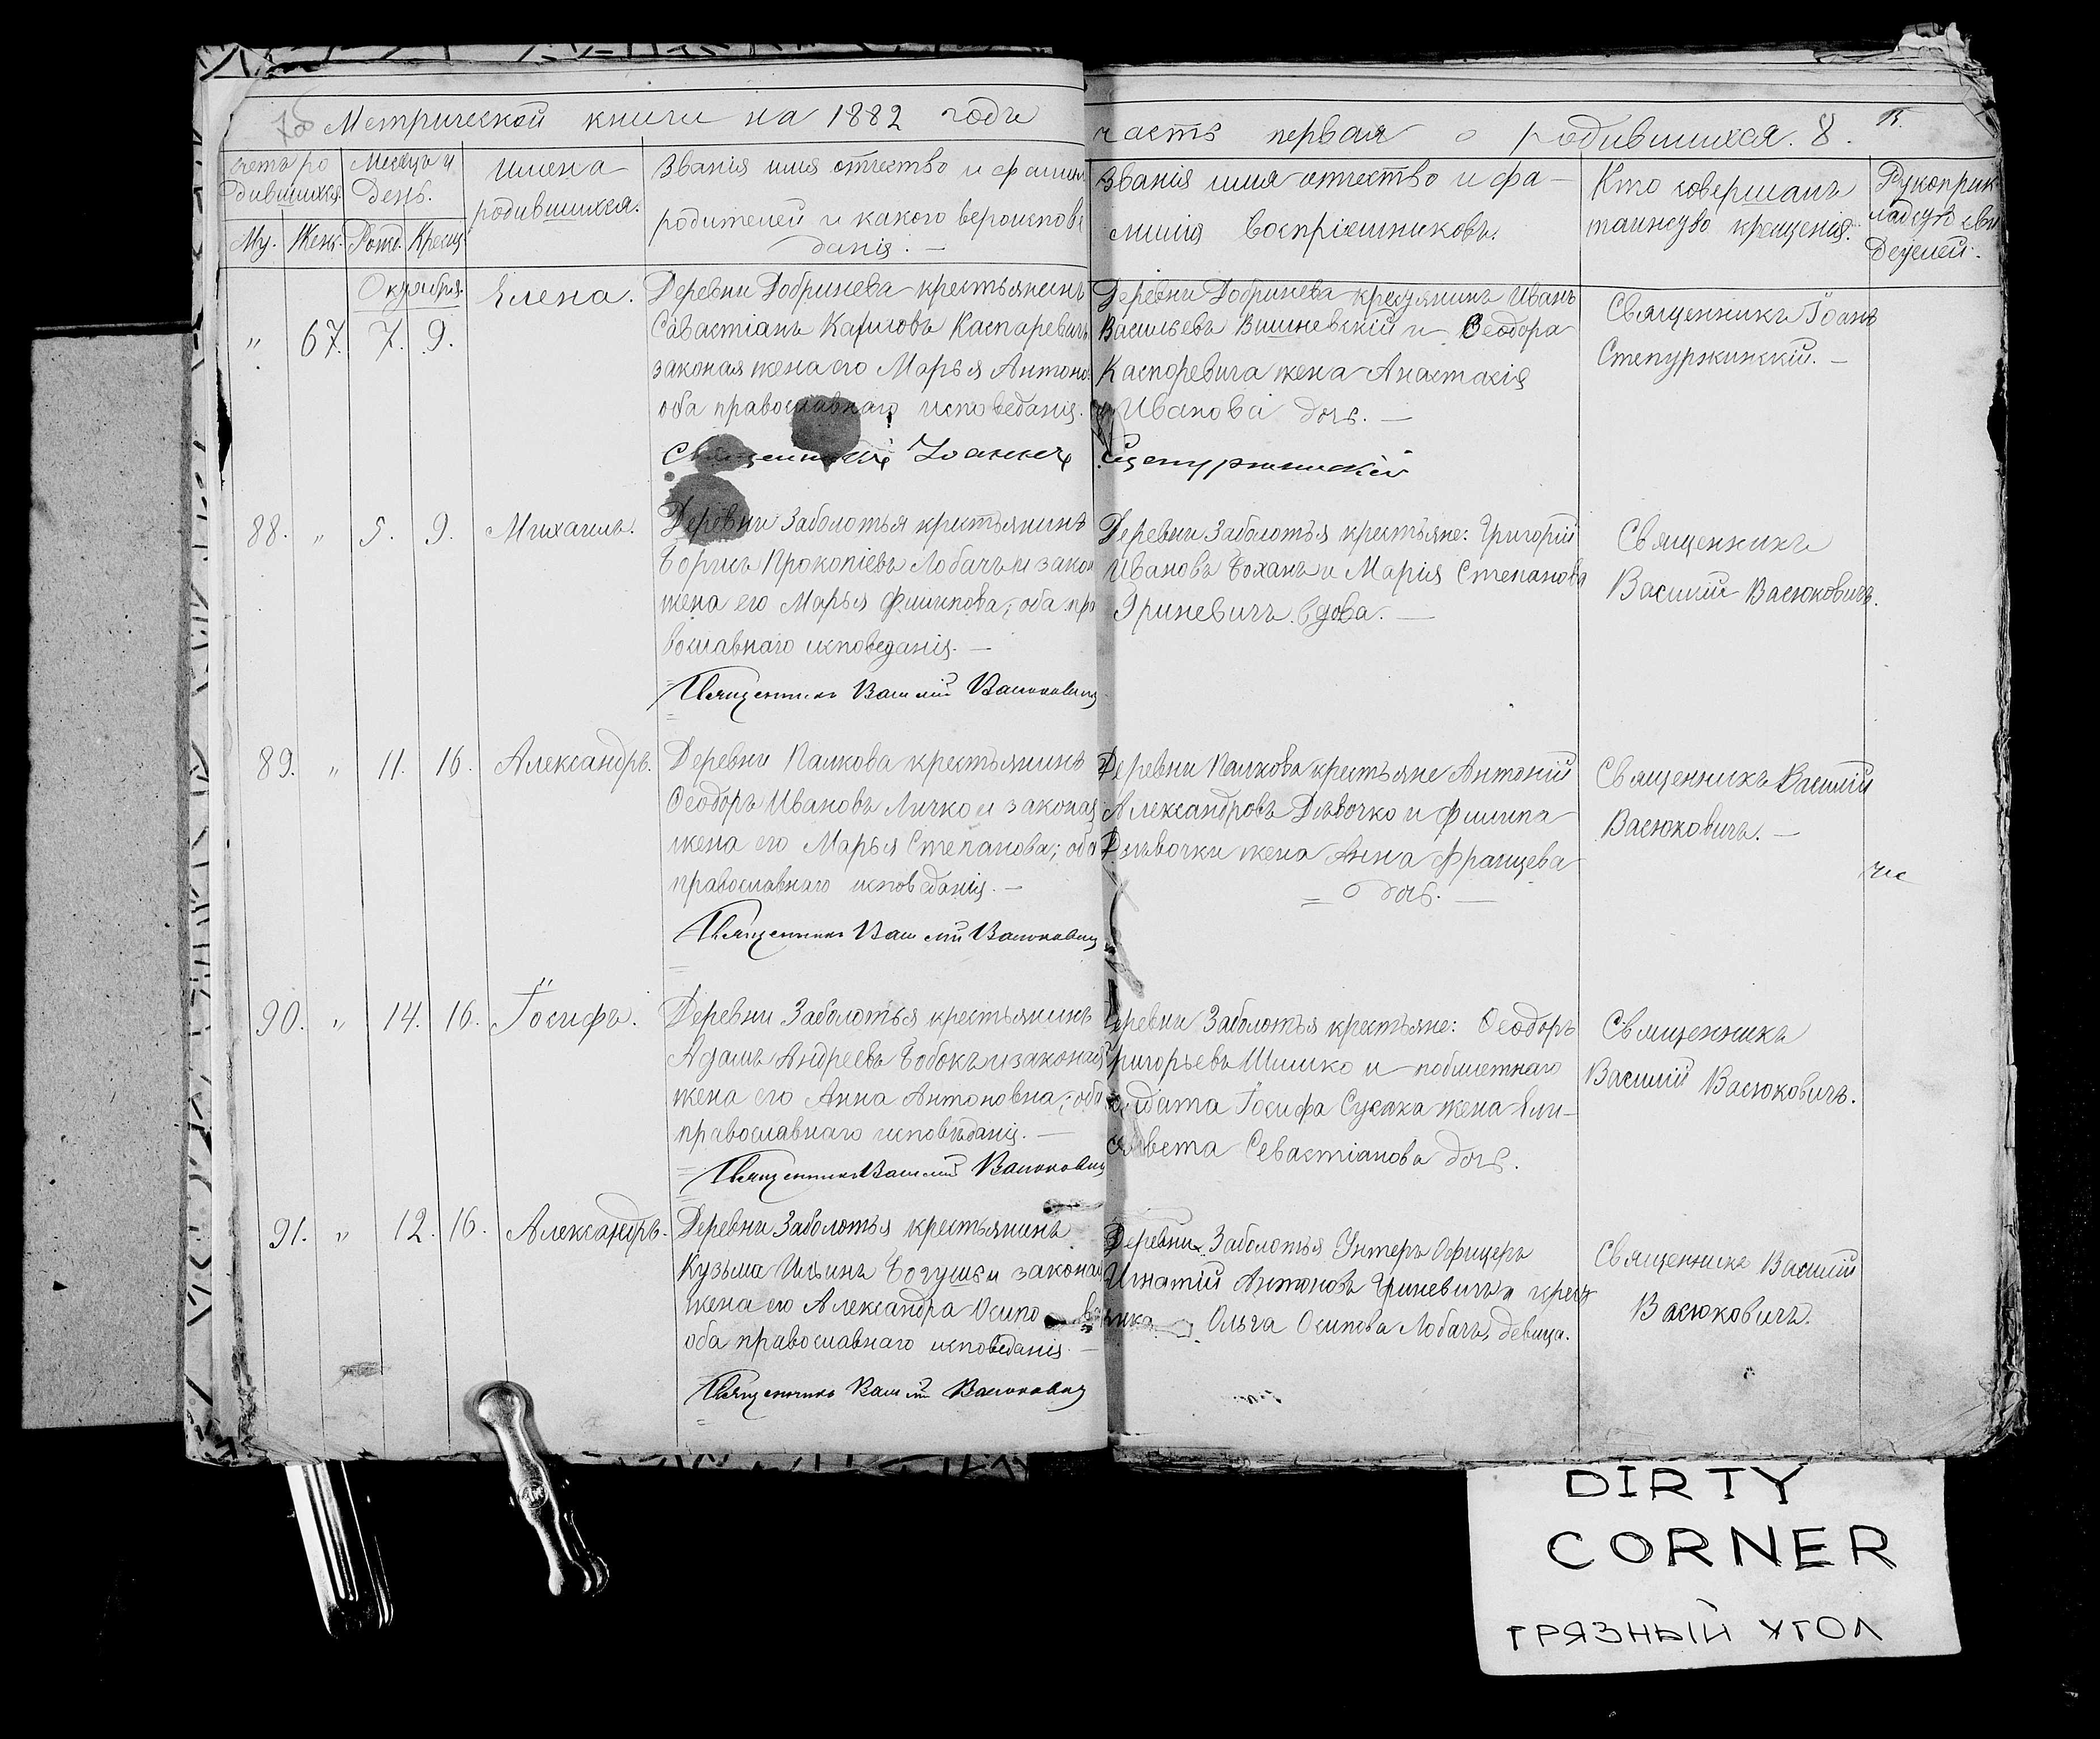 Метрической книги на 1882 годъ
часть первая о родившихся. 8.
счетъ ро
дившихся.
Месяцъ и
День.
имена
родившихся.
Званія имя отчество и фамил
родителей и какого вероиспове
данія. —
Му. Женс. Рожд. Крещ.
Званія имя отчество и фа-
милія воспріемниковъ.
Кто совершалъ
таинство крещенія.
Рукоприк
ладство сви
детелей.
Октября.
" 67. 7. 9.
Елена.
Деревни Добринева крестьянинъ
Савастіанъ Каспаревичъ
законая жена его Марья Антоно.
оба православнаго исповеданія.
Священникъ Іоаннъ
Деревни Добринева крестянинъ Иванъ
Васильевъ Вишневскій и Ѳеодора
Каспоревича жена Анастасія
Иванова дочь. —
Сцепуржинскій
Священникъ Іоанъ
Сцепуржинскій. —
88. " 5. 9.
Михаилъ.
Деревни Заболотья крестьянинъ
Борисъ Прокопіевъ Лобачъ и закон
жена его Марья Филипова; оба пра
вославнаго исповеданія. —
Священникъ Василій Васюковичъ
Деревни Заболотья крестьяне: Григорій
Ивановъ Боханъ и Марія Степанова
Гриневичъ вдова. —
Священникъ
Василій Васюковичъ.
89. " 11. 16.
Александръ.
Деревни Палкова крестьянинъ
Ѳеодоръ Ивановъ Личко и законая
жена его Марья Степанова; оба
православнаго исповеданія. —
Священникъ Василій Васюковичъ
Деревни Палкова крестьяне Антоній
Александровъ Дѣвочко и Филипа
Дѣвочки жена Анна Францева
дочь. —
Священникъ Василій
Васюковичъ. —
90. " 14. 16.
Іосифъ.
Деревни Заболотья крестьянинъ
Адамъ Андреевъ Бобокъ и законая
жена его Анна Антоновна; оба
православнаго исповѣданія. —
Священникъ Василій Васюковичъ
Деревни Заболотья крестьяне: Ѳеодоръ
Григорьевъ Шишко и побилетнаго
солдата Іосифа Сусака жена Ели-
савета Севастіанова дочь.
Священникъ
Василій Васюковичъ.
91. " 12. 16.
Александръ.
Деревни Заболотья крестьянинъ
Кузьма Ильинъ Богушъ и законая
жена его Александра Осипо
оба православнаго исповеданія. —
Священникъ Василій Васюковичъ
Деревни Заболотья Унтеръ Офицеръ
Игнатій Антоновъ Гриневичъ и крест
Ольга Осипова Лобачъ, девица.
Священникъ Василій
Васюковичъ.
DIRTY
CORNER
ГРЯЗНЫЙ УГОЛ